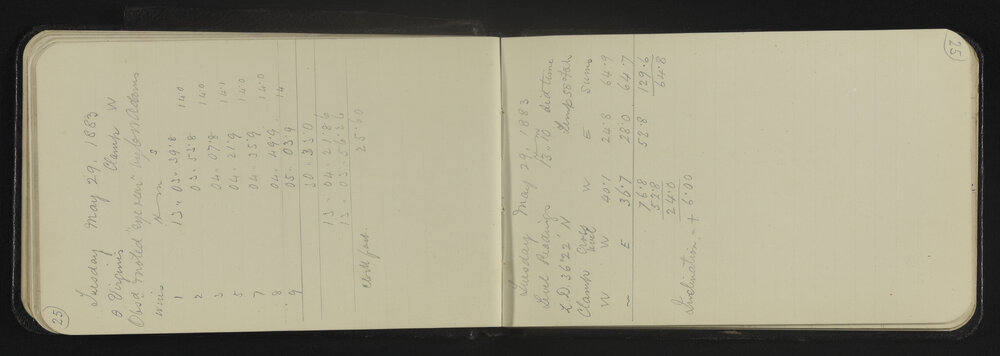 25
Tuesday May 29, 1883
θ Virginis Clamp W
Obsd noted "eye & ear" by Adams
wires h m s
1 13 . 03 . 39.8 14.0
2 03 . 53.8 14.0
3 04 . 07.8 14.1
5 04 . 21.9 14.0
7 04 . 35.9 14.0
8 04 . 49.9 14
9 05 . 03.9
30 . 33.0
13 . 04 . 21.86
13 . 03 . 56.26
Clock fast. 25.60
25
Tuesday May 29, 1883
Level Readings
Z.D. 36°22' N Temp 58
Clamp W E Sums
W W 40.1 24.8 64.9
~ E 36.7 28.0 64.7
76.8 52.8 129.6
52.8 64.8
24.0
Inclination = + 6.00